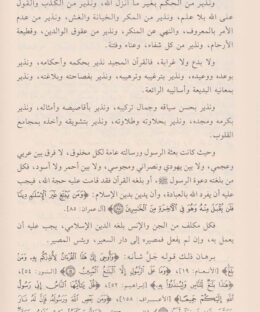 ونذير من الحكم بغير ما أنزل الله، ونذير من الكذب والقول
على الله بلا علم، ونذير من المنكر والخيانة والغش، ونذير من عدم
الأمر بالمعروف، والنهي عن المنكر، ونذير من عقوق الوالدين، وقطيعة
الأرحام، ونذير من كل شقاء، وعناء وفتنة.
ولا بدع ولا غرابة، فالقرآن المجيد نذير بحكمه وأحكامه، ونذير
بوعده ووعيده، ونذير بترغيبه وترهيبه، ونذير بفصاحته وبلاغته، ونذير
بمعانيه البديعة وأساليبه الرائعة.
ونذير بحسن سياقه وجمال تركيبه، ونذير بأقاصيصه وأمثاله، ونذير
بكرمه ومجده، ونذير بحلاوته وطلاوته، ونذير بتشويقه وأخذه بمجامع
القلوب.
وحيث كانت بعثة الرسول ورسالته عامة لكل مخلوق، لا فرق بين عربي
وعجمي، ولا بين يهودي ونصراني ومجوسي، ولا بين أحمر ولا أسود، فكل
من بلغته دعوة الرسول ﷺ، أو بلغه القرآن فقد قامت عليه حجة الله، فيجب
عليه أن يفرد الله بالعبادة، وأن يدين بدين الإسلام: ﴿وَمَن يَبْتَغِ غَيْرَ الْإِسْلَامِ دِينًا
فَلَن يُقْبَلَ مِنْهُ وَهُوَ فِي الْآخِرَةِ مِنَ الْخَاسِرِينَ﴾ [آل عمران: ٨٥].
فكل مكلف من الجن والإنس بلغه الدين الإسلامي، يجب عليه أن
يعمل به، وإن لم يفعل فمصيره إلى دار السعير، وبئس المصير.
برهان ذلك قوله جل شأنه: ﴿وَأُوحِيَ إِلَيَّ هَٰذَا الْقُرْآنُ لِأُنذِرَكُم بِهِ وَمَن
بَلَغَ﴾ [الأنعام: ١٩]، ﴿وَمَا عَلَى الرَّسُولِ إِلَّا الْبَلَاغُ الْمُبِينُ﴾ [النور: ٥٤]